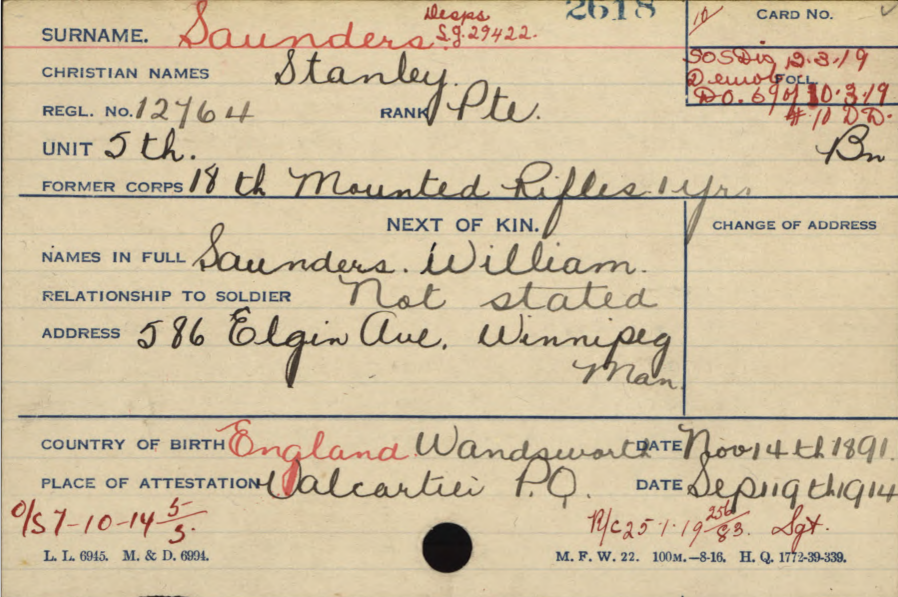 Desps 2618 10 CARD No.
SURNAME. Saunders. Sg. 29422.
SOS Dis 12.3.19
CHRISTIAN NAMES Stanley. Demob FOLL.
REGL. No. 12764 RANK Pte. DO. 69 of 10.3.19
# 10 DD.
UNIT 5th. Bn
FORMER CORPS 18th Mounted Rifles. 1 yr.
NEXT OF KIN. CHANGE OF ADDRESS
NAMES IN FULL Saunders. William.
RELATIONSHIP TO SOLDIER Not stated
ADDRESS 586 Elgin Ave. Winnipeg
Man.
COUNTRY OF BIRTH England Wandsworth DATE Nov 14th 1891.
PLACE OF ATTESTATION Valcartier P.Q. DATE Sep 19th 1914
O/S 7-10-14 5/3. R/C 25.1.19 256/83. Sgt.
L. L. 6945. M. & D. 6994. M. F. W. 22. 100M.—8-16. H. Q. 1772-39-339.